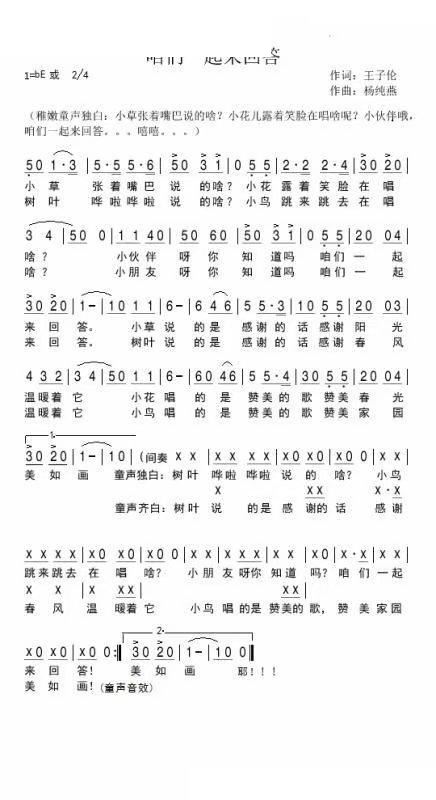 咱们一起来回答
1=bE 或 2/4 作词：王子伦
作曲：杨纯燕
（稚嫩童声独白：小草张着嘴巴说的啥？小花儿露着笑脸在唱啥呢？小伙伴哦，
咱们一起来回答。。。嘻嘻。。。）
50 1·3 | 5·5 5·6 | 50 31 | 0 55 | 2·2 2·4 | 50 55 |
小草 张着嘴巴 说的啥？小花露着笑脸在唱
树叶 哗啦哗啦 说的啥？小鸟跳来跳去在唱
3 4 | 50 0 | 50 11 | 60 60 | 50 31 | 0 55 | 20 04 |
啥？ 小伙伴 呀你 知道吗 咱们一 起
啥？ 小朋友 呀你 知道吗 咱们一 起
30 20 | 1- | 10 11 | 6- | 6 46 | 55·3 | 10 55 | 20 03 |
来回答。 小草说的是 感谢的话感谢阳 光
来回答。 树叶说的是 感谢的话感谢春 风
432 | 34 | 50 11 | 6- | 60 46 | 55·3 | 20 55 | 20 04 |
温暖着它 小花唱的是 赞美的歌赞美春 光
温暖着它 小鸟唱的是 赞美的歌赞美家 园
1.
30 20 | 1- | 10 (间奏 | X X | XX XX | X0 X0 | X X0 | XX |
美如画 童声独白：树叶 哗啦哗啦说的啥？小鸟
X XX X·X
童声齐白：树叶 说 的是感谢的话 感谢
XX XX | X0 X0 | X X0 | X·X X | XX X0 | X0 X0 | X·X XX |
跳来跳去在唱啥？小朋友呀你知道吗？咱们一起
X XX X
春风温暖着它 小鸟唱的是赞美的歌，赞美家园
2.
X0 X0 | X0 X0 :‖ 30 20 | 1- | 100 ‖
来回答！美如画 耶！！！
美如画！(童声音效)